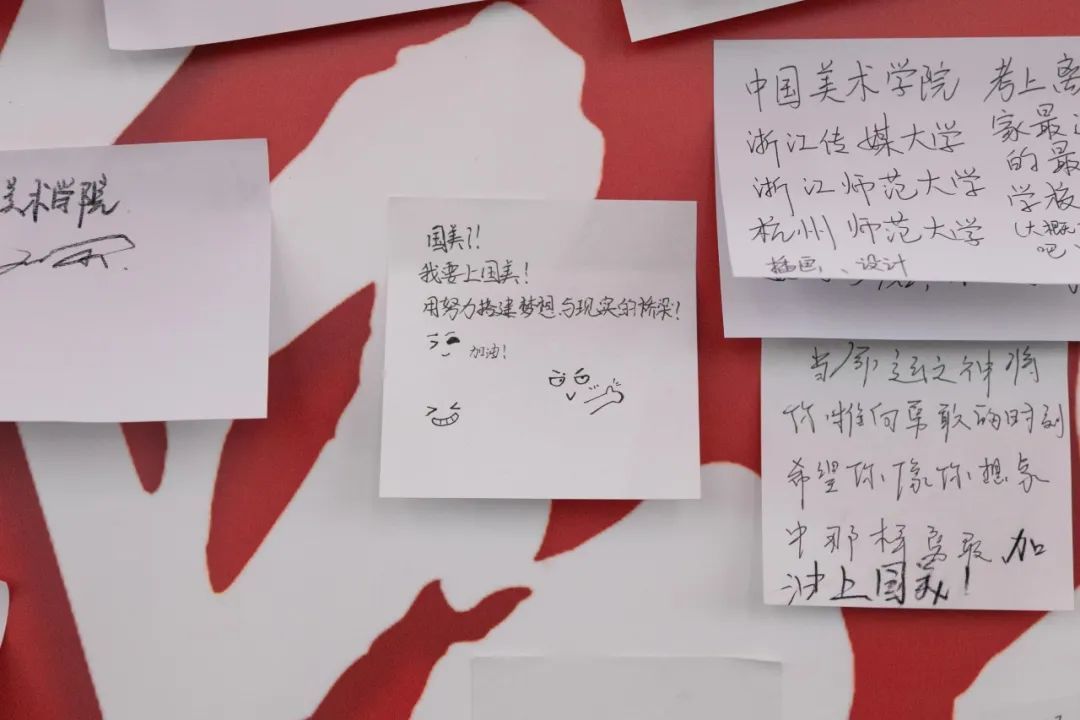 美术学院
国美?!
我要上国美!
用努力搭建梦想与现实的桥梁!
加油!
中国美术学院
浙江传媒大学
浙江师范大学
杭州师范大学
插画、设计
考上离
家最
的最
学校
(大概
吧
当命运之神将
你推向勇敢的时刻
希望你像你想象
中那样勇敢 加
油上国美!